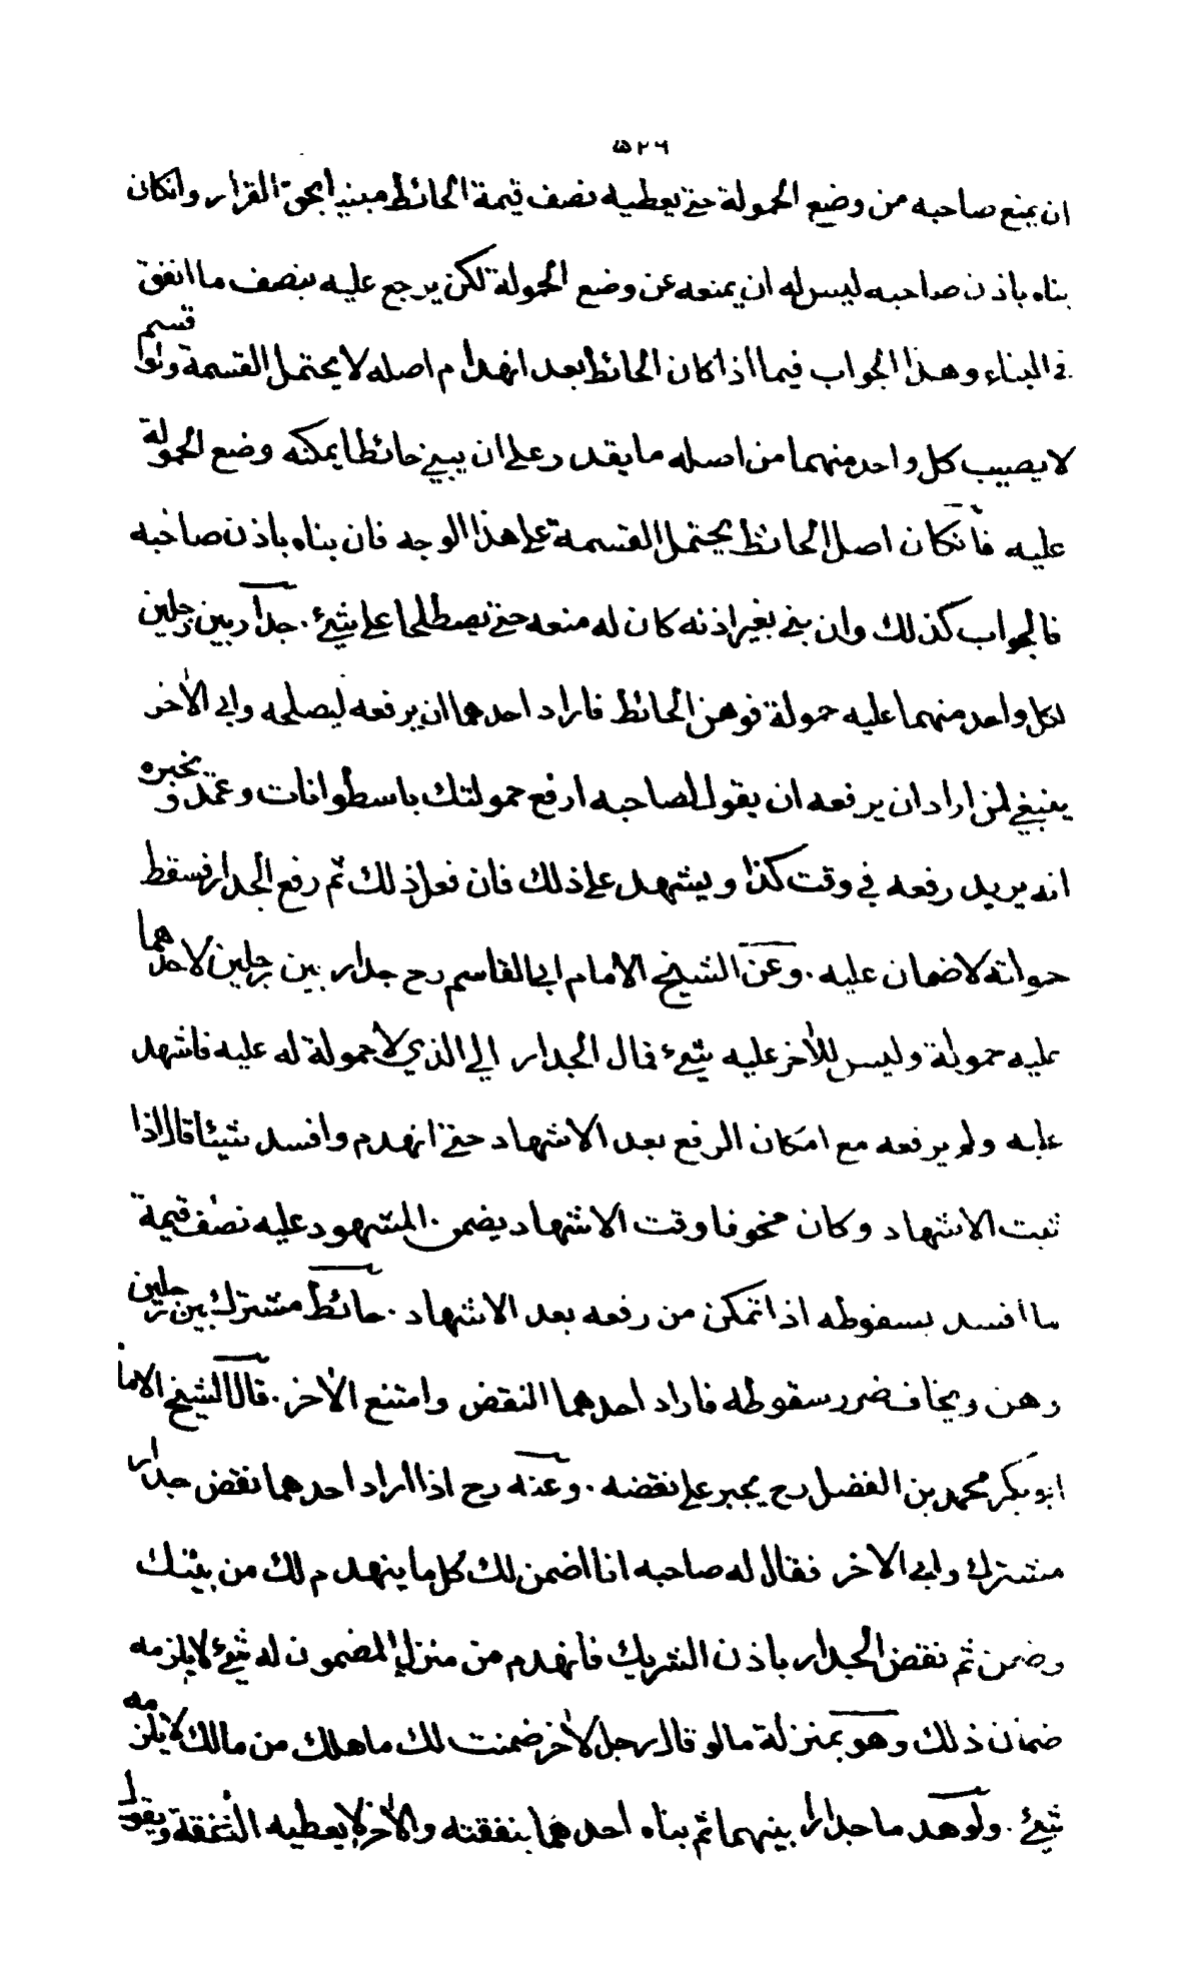 ٥٢٦
ان يمنع صاحبه من وضع الحمولة حتى يعطيه نصف قيمة الحائط مبنيا بحق القرار وانكان
بناه باذن صاحبه ليس له ان يمنعه عن وضع الحمولة لكن يرجع عليه بنصف ما انفق
في البناء وهذا الجواب فيما اذا كان الحائط بعد انهدام اصله لا يحتمل القسمة ولو قسم
لا يصيب كل واحد منهما من اصله ما يقدر على ان يبني حائطا يمكنه وضع الحمولة
عليه فانكان اصل الحائط يحتمل القسمة على هذا الوجه فان بناه باذن صاحبه
فالجواب كذلك وان بنى بغير اذنه كان له منعه حتى يصطلحا على شئ . جدار بين رجلين
لكل واحد منهما عليه حمولة فوهن الحائط فاراد احدهما ان يرفعه ليصلحه وابى الآخر
ينبغي لمن اراد ان يرفعه ان يقول لصاحبه ارفع حمولتك باسطوانات وعمد ويخبره
انه يريد رفعه في وقت كذا ويشهد على ذلك فان فعل ذلك ثم رفع الجدار فسقط
حمولته لا ضمان عليه . وعن الشيخ الامام ابي القاسم رح جدار بين رجلين لاحدهما
عليه حمولة وليس للآخر عليه شئ فمال الجدار الى الذي لا حمولة له عليه فاشهد
عليه ولم يرفعه مع امكان الرفع بعد الاشهاد حتى انهدم وافسد شيئا قال اذا
ثبت الاشهاد وكان مخوفا وقت الاشهاد يضمن المشهود عليه نصف قيمة
ما افسد بسقوطه اذا تمكن من رفعه بعد الاشهاد . حائط مشترك بين رجلين
وهن ويخاف ضرر سقوطه فاراد احدهما النقض وامتنع الآخر . قال الشيخ الامام
ابو بكر محمد بن الفضل رح يجبر على نقضه . وعنه رح اذا اراد احدهما نقض جدار
مشترك وابى الآخر فقال له صاحبه انا اضمن لك كل ما ينهدم لك من بيتك
وضمن ثم نقض الجدار باذن الشريك فانهدم من منزل المضمون له شئ لا يلزمه
ضمان ذلك وهو بمنزلة ما لو قال رجل لآخر ضمنت لك ما هلك من مالك لا يلزمه
شئ . ولو هدما جدارا بينهما ثم بناه احدهما بنفقته والآخر لا يعطيه النفقة ويقول